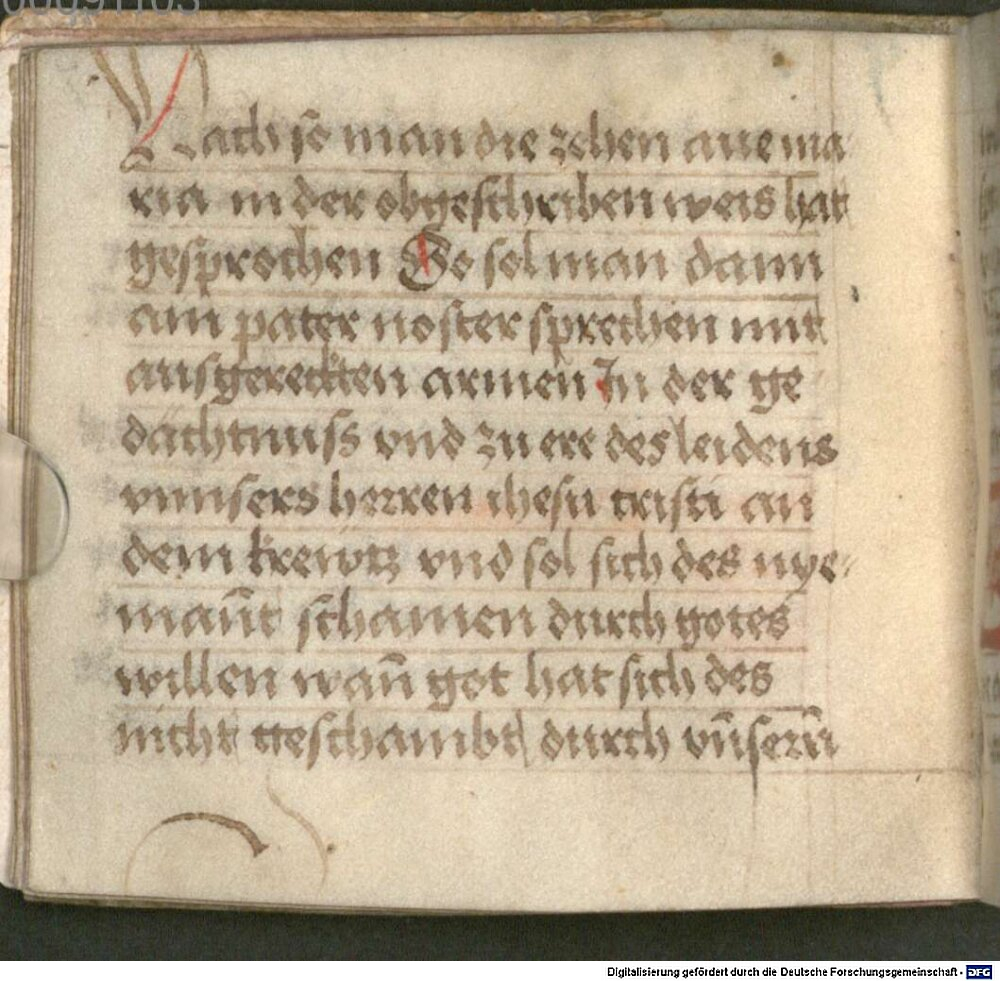 Nach so man die zehen aue ma
ria in der obgeschriben weis hat
gesprochen So sol man dann
ain pater noster sprechen mit
ausgereckten armen In der ge
dächtnuss vnd zu ere des leidens
vnnsers herren ihesu cristi an
dem krewtz vnd sol sich des nye-
man̄t schamen durch gotes
willen wan̄ got hat sich des
nicht geschambt durch vn̄sern̄
Digitalisierung gefördert durch die Deutsche Forschungsgemeinschaft - DFG